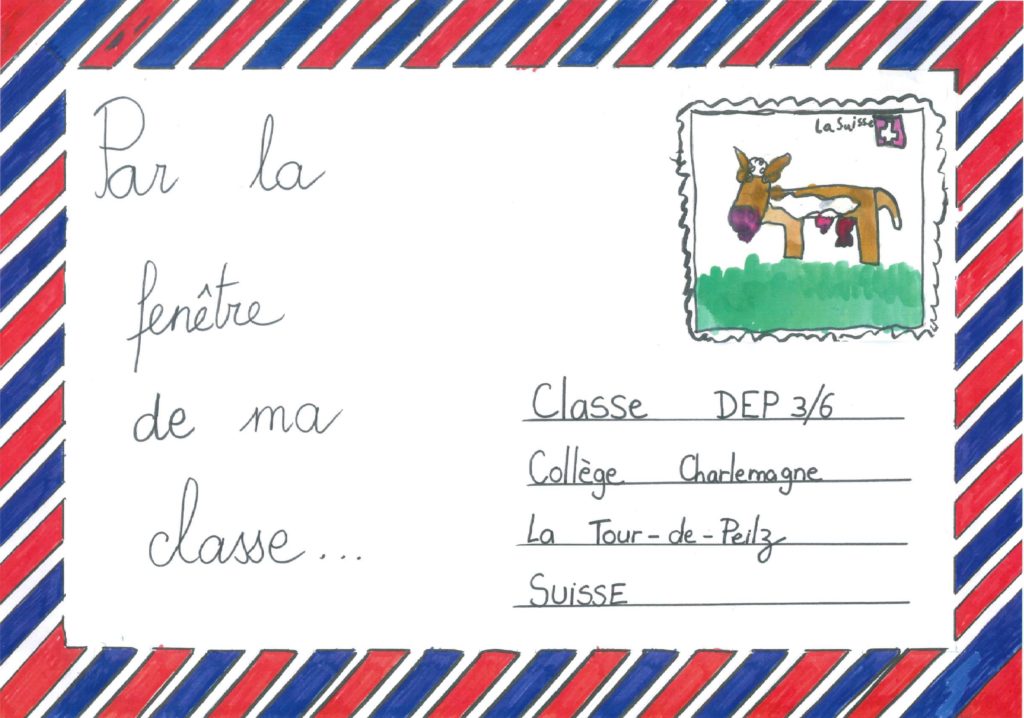 Par la
fenêtre
de ma
classe...
La Suisse
Classe DEP 3/6
Collège Charlemagne
La Tour-de-Peilz
SUISSE